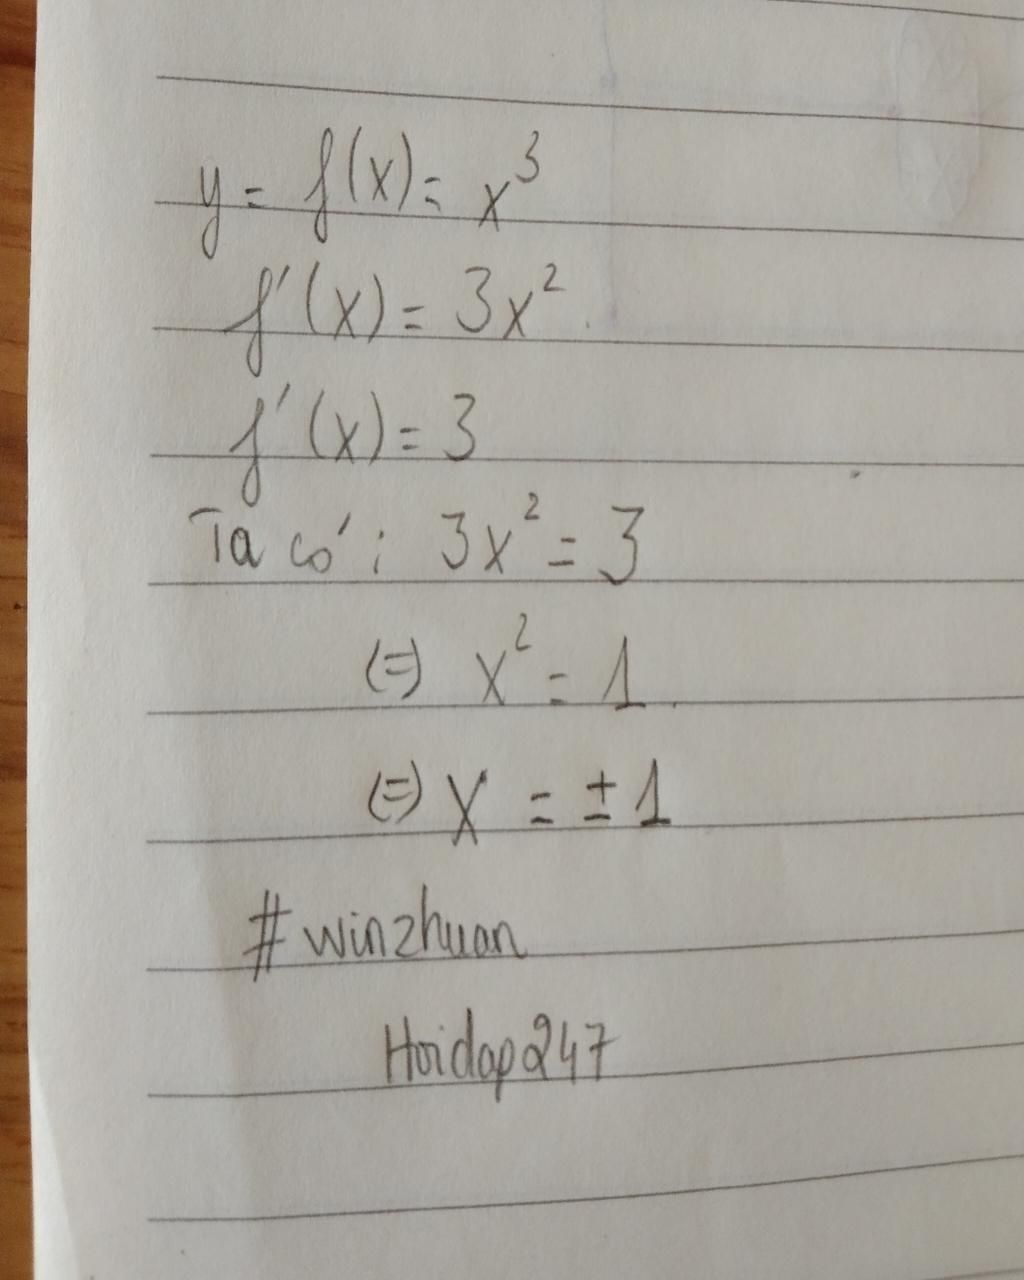 y = f(x) = x³
f'(x) = 3x².
f'(x) = 3
Ta có: 3x² = 3
(=) x² = 1
(=) x = ±1
#winzhuan
Hoidap247